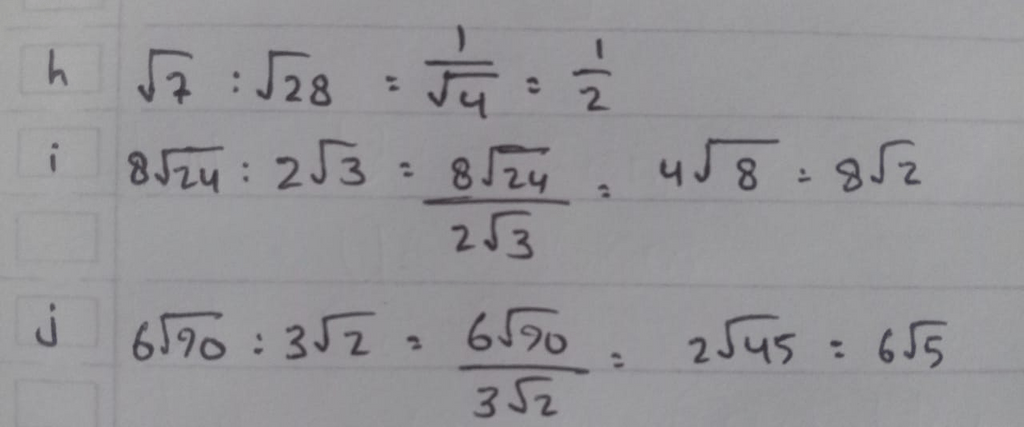 h √7 : √28 = 1/√4 = 1/2
i 8√24 : 2√3 = 8√24/2√3 = 4√8 = 8√2
j 6√90 : 3√2 = 6√90/3√2 = 2√45 = 6√5